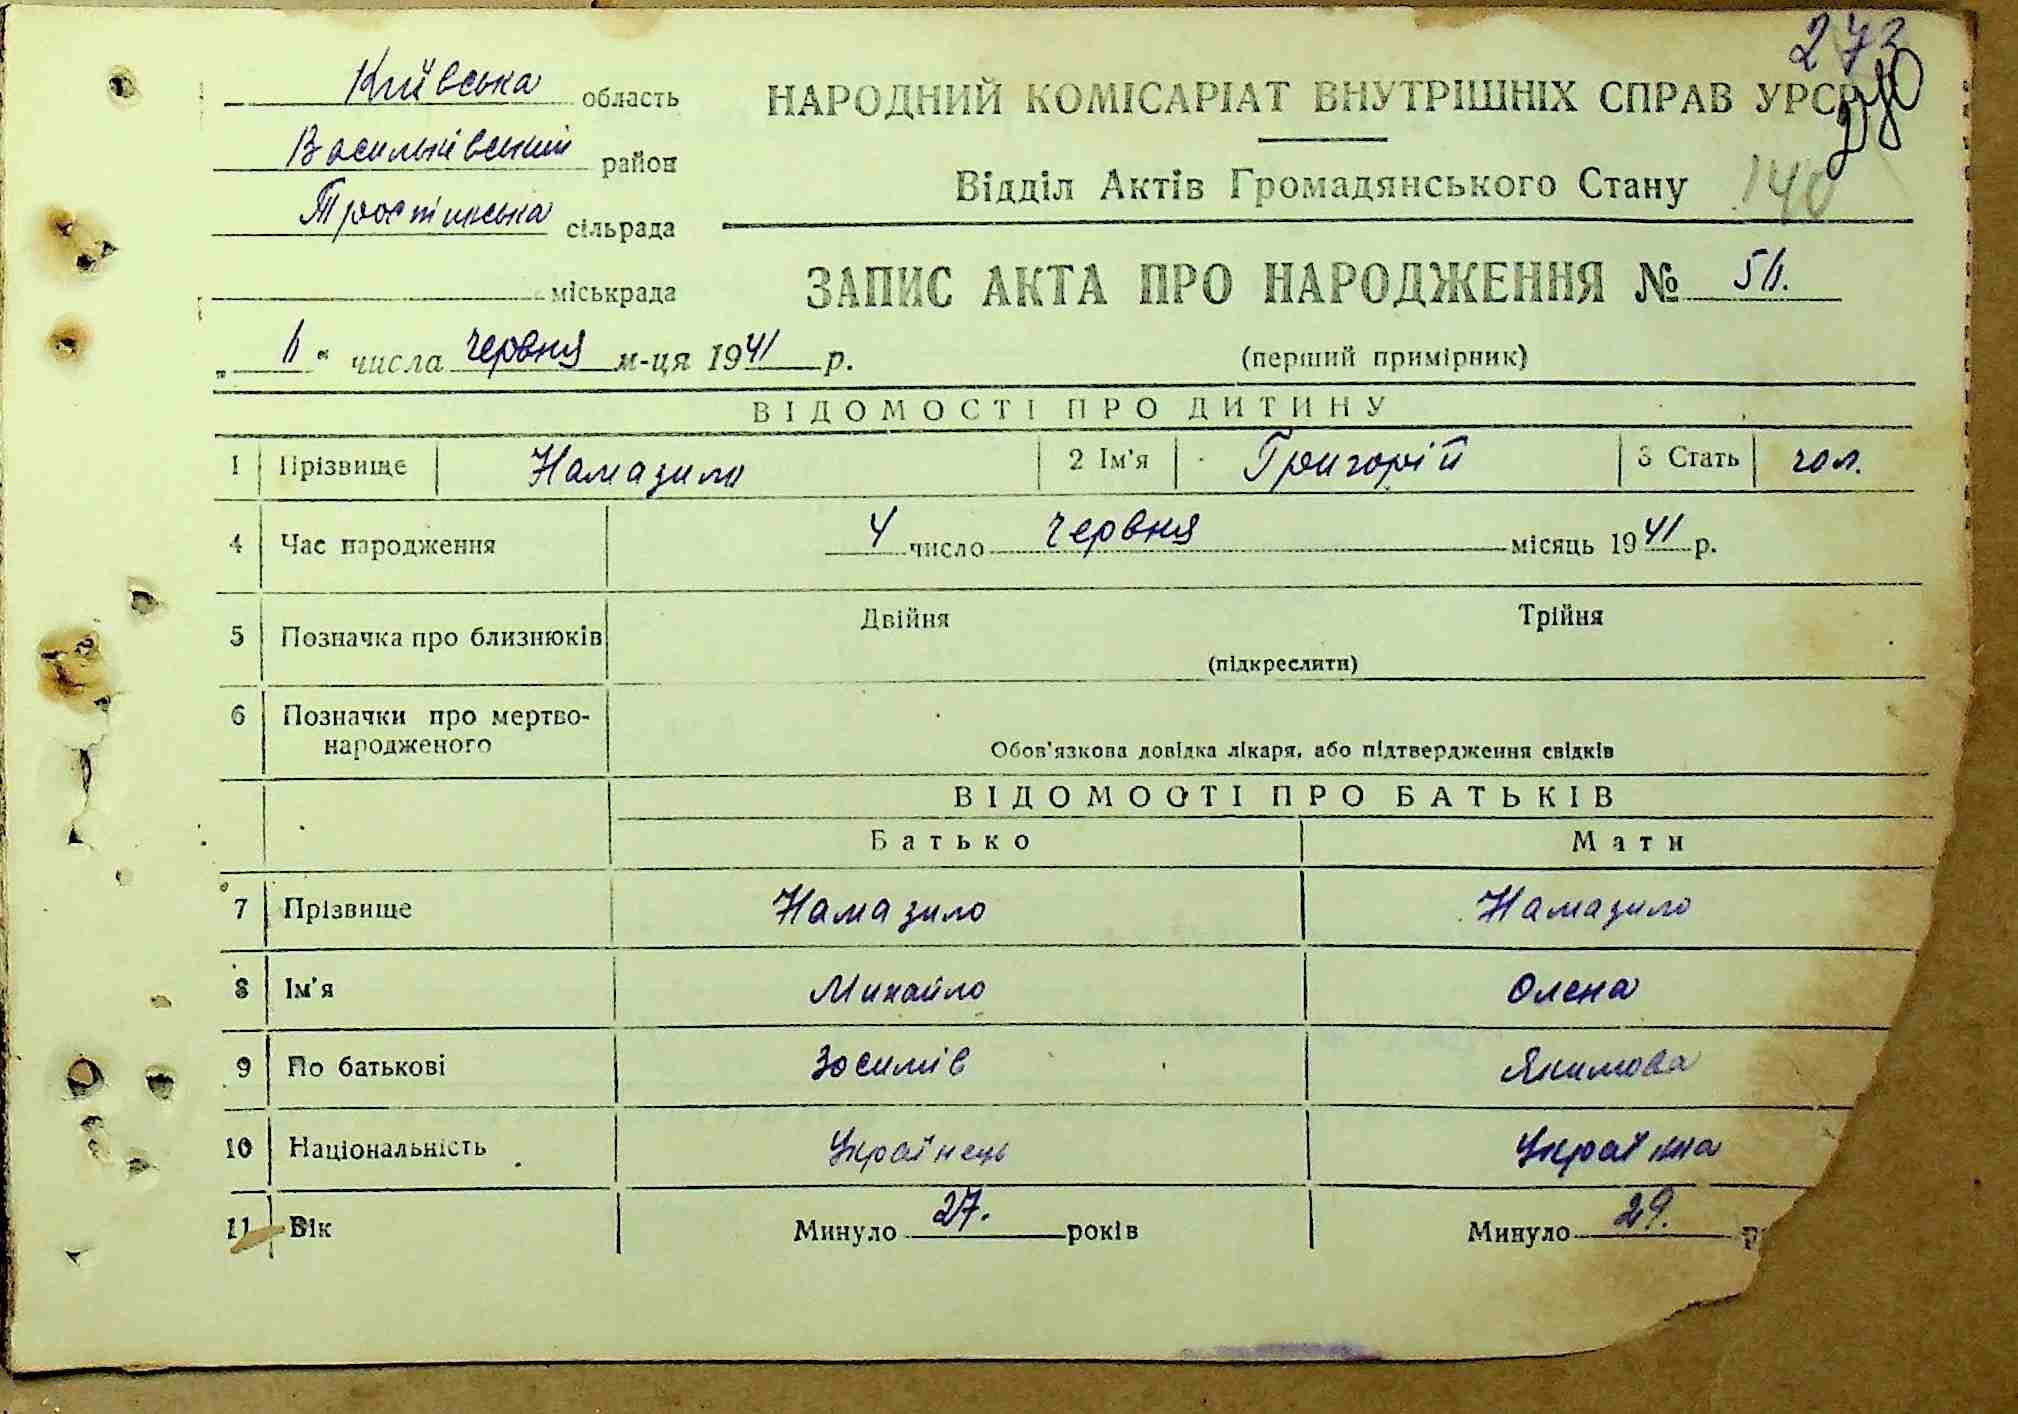 273
280
140
Київська область
Васильківський район
Тростинська сільрада
міськрада
НАРОДНИЙ КОМІСАРІАТ ВНУТРІШНІХ СПРАВ УРСР
Відділ Актів Громадянського Стану
ЗАПИС АКТА ПРО НАРОДЖЕННЯ №
(перший примірник)
„ “ числа червня м-ця 1941 р.
ВІДОМОСТІ ПРО ДИТИНУ
1 Прізвище Намазило 2 Ім'я Григорій 3 Стать чол.
4 Час народження 4 число червня місяць 1941 р.
5 Позначка про близнюків Двійня Трійня
(підкреслити)
6 Позначки про мертво-
народженого
Обов'язкова довідка лікаря, або підтвердження свідків
ВІДОМОСТІ ПРО БАТЬКІВ
Батько Мати
7 Прізвище Намазило Намазило
8 Ім'я Михайло Олена
9 По батькові Зосимів Якимова
10 Національність Українець Українка
11 Вік Минуло 27. років Минуло 29. р